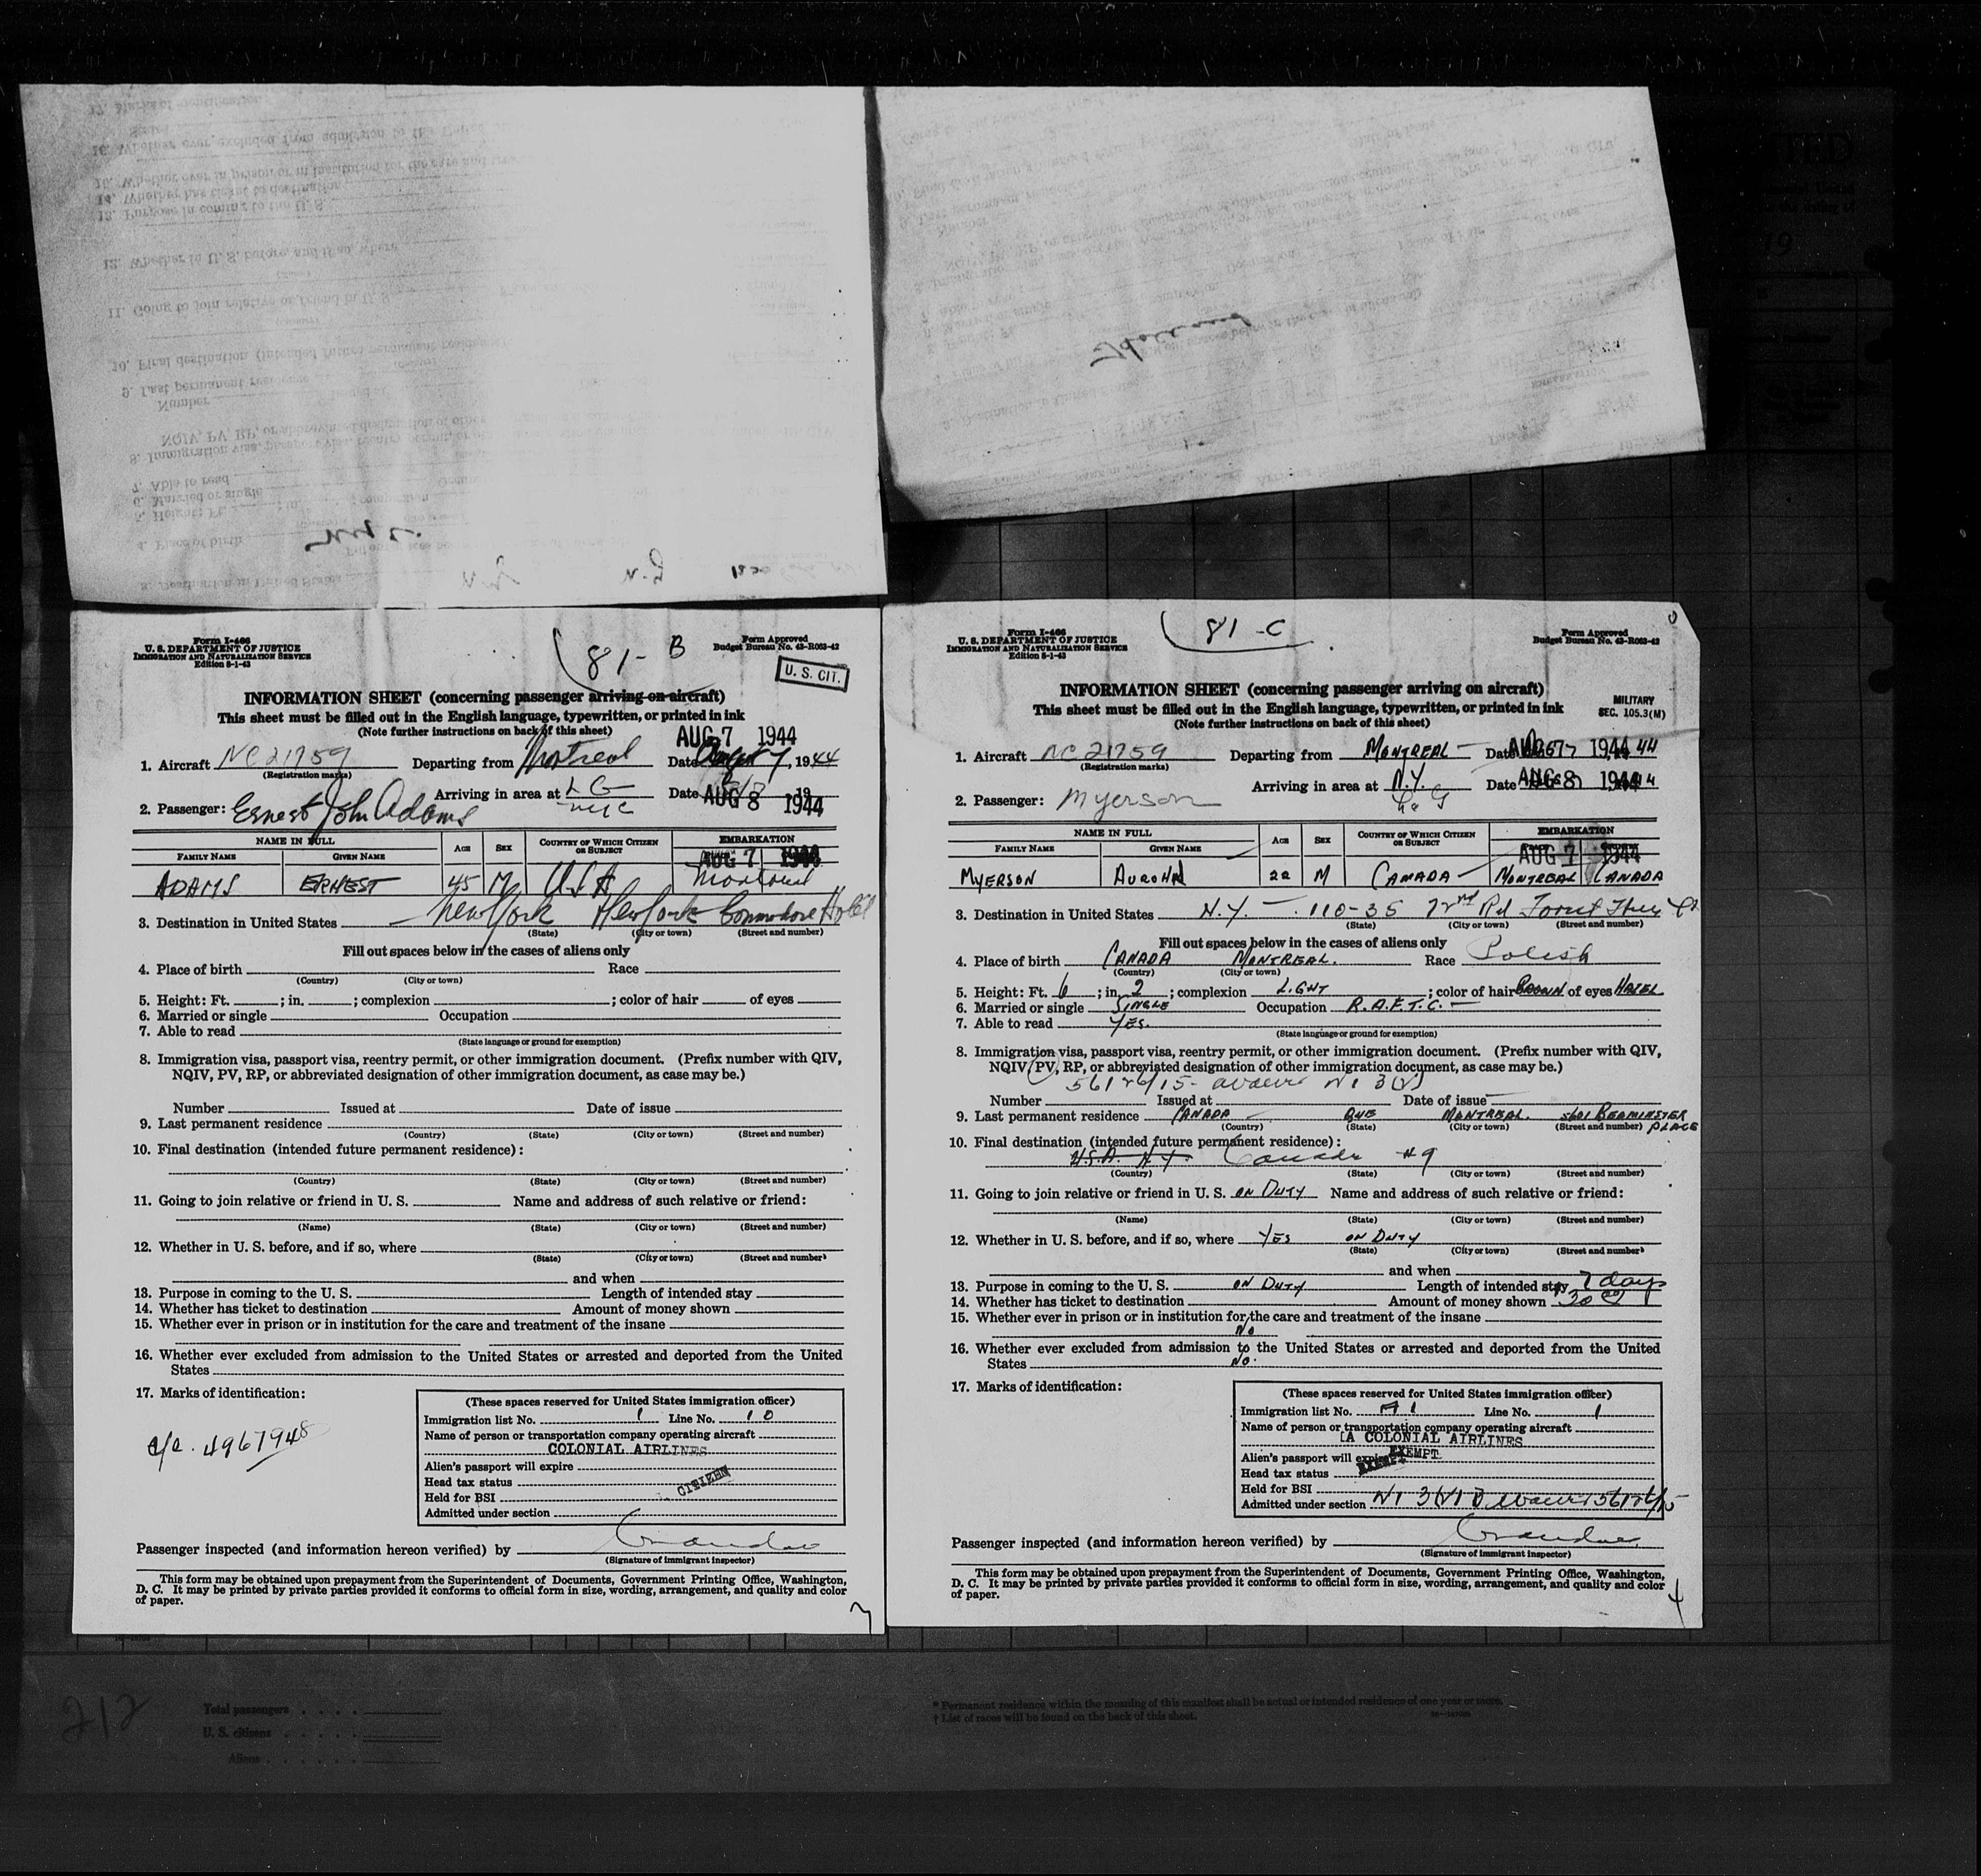 Form I-466
U. S. DEPARTMENT OF JUSTICE
IMMIGRATION AND NATURALIZATION SERVICE
Edition 5-1-43
81-B
Form Approved
Budget Bureau No. 43-R063-42
U. S. CIT.
INFORMATION SHEET (concerning passenger arriving on aircraft)
This sheet must be filled out in the English language, typewritten, or printed in ink
(Note further instructions on back of this sheet)
AUG 7 1944
1. Aircraft NC21759 Departing from Montreal Date 7, 1944
(Registration marks)
Arriving in area at LG NYC Date AUG 8 1944
2. Passenger: Ernest John Adams
NAME IN FULL AGE SEX COUNTRY OF WHICH CITIZEN OR SUBJECT EMBARKATION
FAMILY NAME GIVEN NAME AUG 7 1944
ADAMS ERNEST 45 M USA Montreal
3. Destination in United States New York New York Commodore Hotel
(State) (City or town) (Street and number)
Fill out spaces below in the cases of aliens only
4. Place of birth Race
(Country) (City or town)
5. Height: Ft. ; in. ; complexion ; color of hair of eyes
6. Married or single Occupation
7. Able to read
(State language or ground for exemption)
8. Immigration visa, passport visa, reentry permit, or other immigration document. (Prefix number with QIV,
NQIV, PV, RP, or abbreviated designation of other immigration document, as case may be.)
Number Issued at Date of issue
9. Last permanent residence
(Country) (State) (City or town) (Street and number)
10. Final destination (intended future permanent residence):
(Country) (State) (City or town) (Street and number)
11. Going to join relative or friend in U. S. Name and address of such relative or friend:
(Name) (State) (City or town) (Street and number)
12. Whether in U. S. before, and if so, where
(State) (City or town) (Street and number)
and when
13. Purpose in coming to the U. S. Length of intended stay
14. Whether has ticket to destination Amount of money shown
15. Whether ever in prison or in institution for the care and treatment of the insane
16. Whether ever excluded from admission to the United States or arrested and deported from the United
States
17. Marks of identification:
4967948
(These spaces reserved for United States immigration officer)
Immigration list No. 1 Line No. 10
Name of person or transportation company operating aircraft
COLONIAL AIRLINES
Alien's passport will expire
Head tax status CITIZEN
Held for BSI
Admitted under section
Passenger inspected (and information hereon verified) by
(Signature of immigrant inspector)
This form may be obtained upon prepayment from the Superintendent of Documents, Government Printing Office, Washington,
D. C. It may be printed by private parties provided it conforms to official form in size, wording, arrangement, and quality and color
of paper.
Form I-466
U. S. DEPARTMENT OF JUSTICE
IMMIGRATION AND NATURALIZATION SERVICE
Edition 5-1-43
81-C
Form Approved
Budget Bureau No. 43-R063-42
INFORMATION SHEET (concerning passenger arriving on aircraft)
MILITARY
SEC. 105.3(M)
This sheet must be filled out in the English language, typewritten, or printed in ink
(Note further instructions on back of this sheet)
1. Aircraft NC 21759 Departing from MONTREAL Date AUG 7 1944
(Registration marks)
Arriving in area at N.Y. Date AUG 8 1944
2. Passenger: Myerson
NAME IN FULL AGE SEX COUNTRY OF WHICH CITIZEN OR SUBJECT EMBARKATION
FAMILY NAME GIVEN NAME AUG 7 1944
MYERSON 22 M CANADA MONTREAL CANADA
3. Destination in United States N.Y. 110-35 72nd Rd Forest
(State) (City or town) (Street and number)
Fill out spaces below in the cases of aliens only
4. Place of birth CANADA MONTREAL. Race Polish
(Country) (City or town)
5. Height: Ft. 6; in. 2; complexion LIGHT; color of hair BROWN of eyes HAZEL
6. Married or single SINGLE Occupation R.A.F.T.C.
7. Able to read YES.
(State language or ground for exemption)
8. Immigration visa, passport visa, reentry permit, or other immigration document. (Prefix number with QIV,
NQIV, PV, RP, or abbreviated designation of other immigration document, as case may be.)
Number Issued at Date of issue
9. Last permanent residence CANADA QUE MONTREAL. 5601 PLACE
(Country) (State) (City or town) (Street and number)
10. Final destination (intended future permanent residence):
U.S.A. N.Y. Canada #9
(Country) (State) (City or town) (Street and number)
11. Going to join relative or friend in U. S. ON DUTY Name and address of such relative or friend:
(Name) (State) (City or town) (Street and number)
12. Whether in U. S. before, and if so, where YES ON DUTY
(State) (City or town) (Street and number)
and when
13. Purpose in coming to the U. S. ON DUTY Length of intended stay 7 days
14. Whether has ticket to destination Amount of money shown 30 00
15. Whether ever in prison or in institution for the care and treatment of the insane
NO
16. Whether ever excluded from admission to the United States or arrested and deported from the United
States NO.
17. Marks of identification:
(These spaces reserved for United States immigration officer)
Immigration list No. A1 Line No. 1
Name of person or transportation company operating aircraft
COLONIAL AIRLINES
Alien's passport will expire EXEMPT
Head tax status EXEMPT
Held for BSI
Admitted under section
Passenger inspected (and information hereon verified) by
(Signature of immigrant inspector)
This form may be obtained upon prepayment from the Superintendent of Documents, Government Printing Office, Washington,
D. C. It may be printed by private parties provided it conforms to official form in size, wording, arrangement, and quality and color
of paper.
4
212
Total passengers
U. S. citizens
Aliens
* Permanent residence within the meaning of this manifest shall be actual or intended residence of one year or more.
† List of races will be found on the back of this sheet.